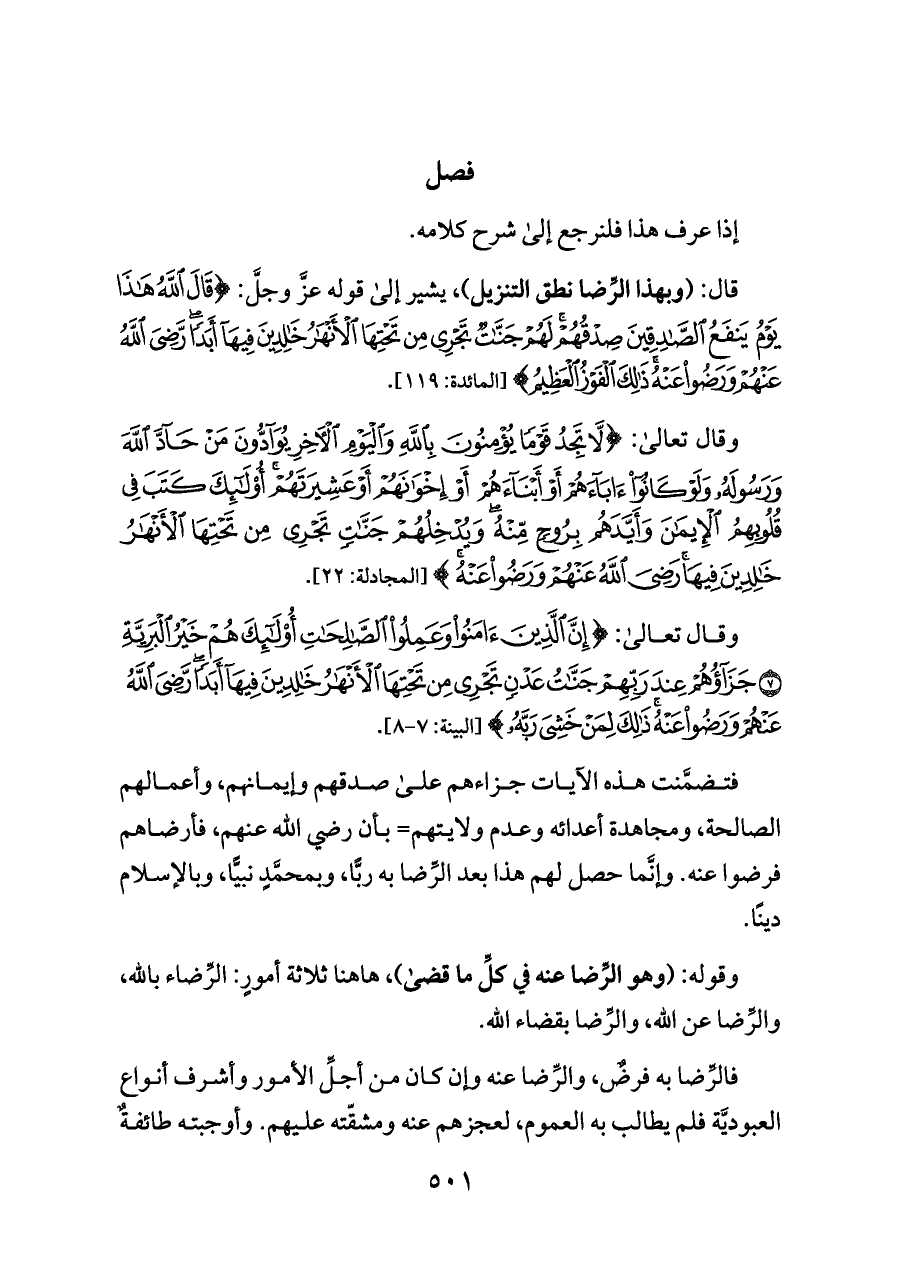 فصل
إذا عرف هذا فلنرجع إلىٰ شرح كلامه.
قال: (وبهذا الرِّضا نطق التنزيل)، يشير إلىٰ قوله عزَّ وجلَّ: ﴿قَالَ ٱللَّهُ هَٰذَا
يَوْمُ يَنفَعُ ٱلصَّٰدِقِينَ صِدْقُهُمْۚ لَهُمْ جَنَّٰتٌ تَجْرِي مِن تَحْتِهَا ٱلْأَنْهَٰرُ خَٰلِدِينَ فِيهَآ أَبَدًاۖ رَّضِيَ ٱللَّهُ
عَنْهُمْ وَرَضُوا۟ عَنْهُۚ ذَٰلِكَ ٱلْفَوْزُ ٱلْعَظِيمُ﴾ [المائدة: ١١٩].
وقال تعالىٰ: ﴿لَّا تَجِدُ قَوْمًا يُؤْمِنُونَ بِٱللَّهِ وَٱلْيَوْمِ ٱلْأٓخِرِ يُوَآدُّونَ مَنْ حَآدَّ ٱللَّهَ
وَرَسُولَهُۥ وَلَوْ كَانُوٓا۟ ءَابَآءَهُمْ أَوْ أَبْنَآءَهُمْ أَوْ إِخْوَٰنَهُمْ أَوْ عَشِيرَتَهُمْۚ أُو۟لَٰٓئِكَ كَتَبَ فِي
قُلُوبِهِمُ ٱلْإِيمَٰنَ وَأَيَّدَهُم بِرُوحٍ مِّنْهُۖ وَيُدْخِلُهُمْ جَنَّٰتٍ تَجْرِي مِن تَحْتِهَا ٱلْأَنْهَٰرُ
خَٰلِدِينَ فِيهَاۚ رَضِيَ ٱللَّهُ عَنْهُمْ وَرَضُوا۟ عَنْهُۚ﴾ [المجادلة: ٢٢].
وقال تعالىٰ: ﴿إِنَّ ٱلَّذِينَ ءَامَنُوا۟ وَعَمِلُوا۟ ٱلصَّٰلِحَٰتِ أُو۟لَٰٓئِكَ هُمْ خَيْرُ ٱلْبَرِيَّةِ
٧ جَزَآؤُهُمْ عِندَ رَبِّهِمْ جَنَّٰتُ عَدْنٍ تَجْرِي مِن تَحْتِهَا ٱلْأَنْهَٰرُ خَٰلِدِينَ فِيهَآ أَبَدًاۖ رَّضِيَ ٱللَّهُ
عَنْهُمْ وَرَضُوا۟ عَنْهُۚ ذَٰلِكَ لِمَنْ خَشِيَ رَبَّهُۥ﴾ [البينة: ٧-٨].
فتضمَّنت هذه الآيات جزاءهم علىٰ صدقهم وإيمانهم، وأعمالهم
الصالحة، ومجاهدة أعدائه وعدم ولايتهم= بأن رضي الله عنهم، فأرضاهم
فرضوا عنه. وإنَّما حصل لهم هذا بعد الرِّضا به ربًّا، وبمحمَّدٍ نبيًّا، وبالإسلام
دينًا.
وقوله: (وهو الرِّضا عنه في كلِّ ما قضىٰ)، هاهنا ثلاثة أمورٍ: الرِّضاء بالله،
والرِّضا عن الله، والرِّضا بقضاء الله.
فالرِّضا به فرضٌ، والرِّضا عنه وإن كان من أجلِّ الأمور وأشرف أنواع
العبوديَّة فلم يطالب به العموم، لعجزهم عنه ومشقّته عليهم. وأوجبته طائفةٌ
٥٠١